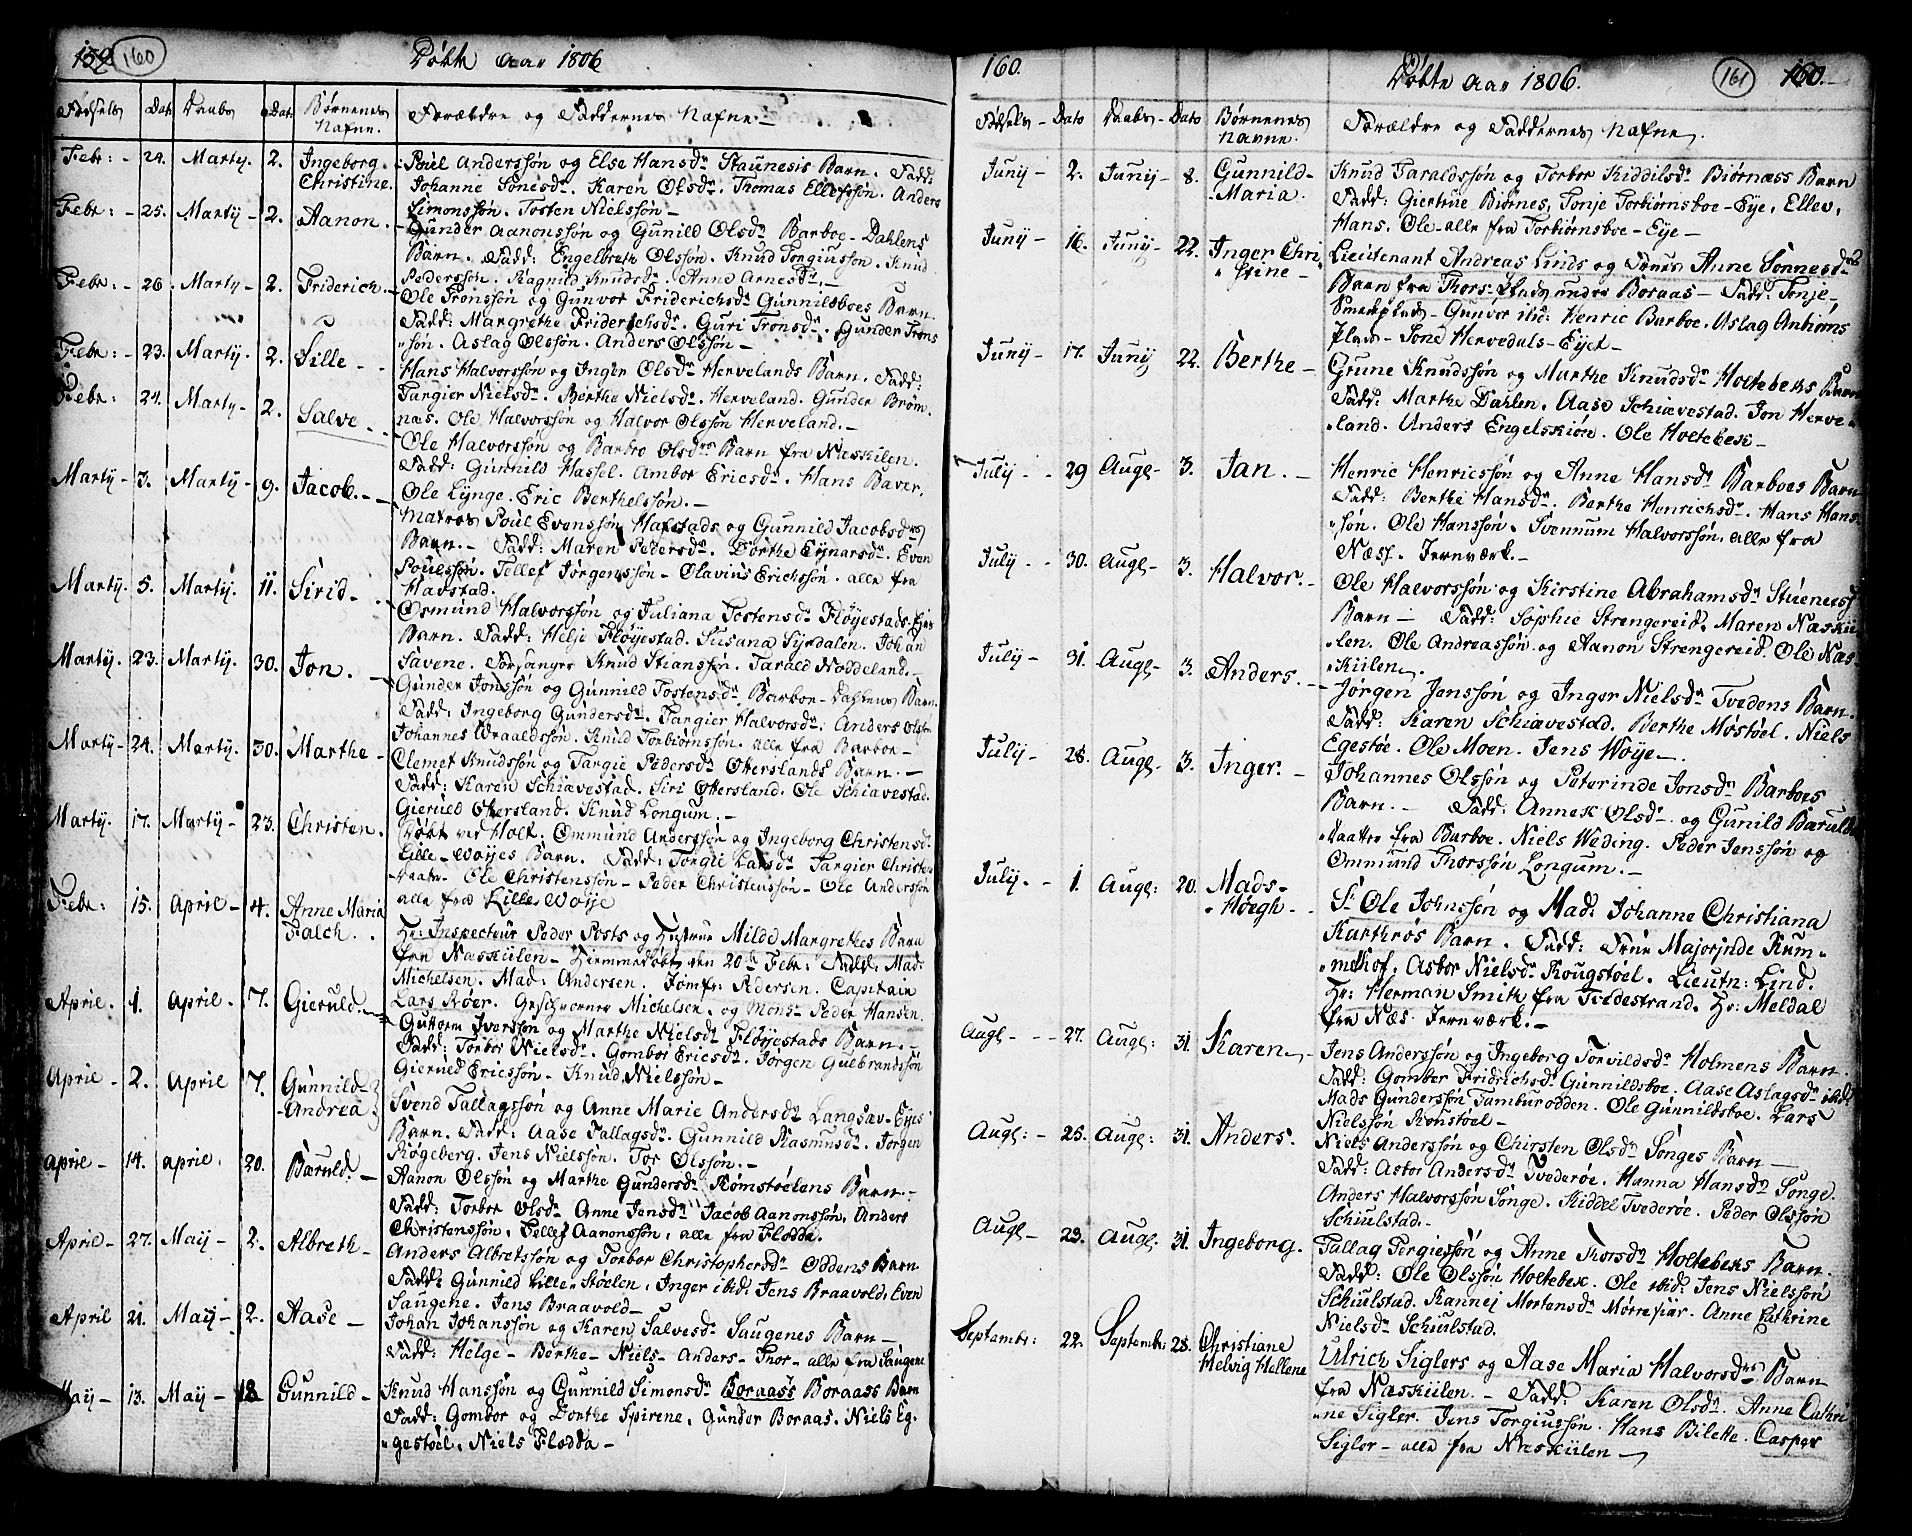 159 160 Døbte Aar 1806
Fødsels Dat: Daabs Dat: Børnenes Nafne. Forældre og Faddernes Nafne.
Febr: 24. Marty. 2. Ingeborg Christine. Poul Anderssøn og Else Hansdr Staunesis Barn. Fadd:
Johanne Sønesdr. Karen Olsdr. Thomas Ellefssøn. Anders
Simonssøn. Tosten Nielssøn
Febr: 25. Marty 2. Aanon. Gunder Aanonssøn og Gunild Olsdr Barboe-Dahlens
Barn. Fadd: Engelbreth Olssøn. Knud Torgiussøn. Knud
Pederssøn. Ragnild Knudsdr. Anne Arnesdr.
Febr: 26. Marty 2. Friderich. Ole Tronssøn og Gunvor Friderichsdr Gunnildsboes Barn.
Fadd: Margrethe Friderichsdr. Guri Tronsdr. Gunder Trons
søn. Aslag Olssøn. Anders Olssøn
Febr: 23. Marty. 2. Sille Hans Halvorssøn og Inger Olsdr Hervelands Barn. Fadd:
Targier Nielsdr. Berthe Nielsdr. Herveland. Gunder Brøm.
næs. Ole Halvorssøn og Halvor Olssøn Herveland.
Febr: 24. Marty 2. Salve Ole Halvorssøn og Barbro Olsdrs Barn fra Naskilen.
Fadd: Gunnild Hassel. Ambor Ericsdr. Hans Baver.
Ole Lynge. Eric Berthelssøn.
Marty 3. Marty 9. Jacob. Matros Poul Evenssøn Hafstads og Gunnild Jacobsdrs
Barn. Fadd: Maren Pedersdr. Dorthe Eynarsdr. Even
Poulssøn. Tellef Jørgenssøn Olavius Erichssøn. alle fra
Havstad.
Marty. 5. Marty. 11. Sirid Osmund Halvorssøn og Juliana Tostensdr Fløyestads-Eyes
Barn. Fadd: Helje Fløyestad. Susana Syrdalen. Johan
Savene. Forsanger Knud Stianssøn. Tarald Noddeland.
Marty. 23. Marty. 30. Jon. Gunder Jonssøn og Gunnild Tostensdr Barboe-Dahlens Barn.
Fadd: Ingeborg Gundersdr. Targier Halvorsdr. Anders Olssøn
Johannes Wraaldssøn. Knud Torbiørnssøn. alle fra Barboe
Marty 24. Marty. 30. Marthe Clemet Knudssøn og Targie Pedersdr Oterslands Barn.
Fadd: Karen Schiævestad. Siri Otersland. Ole Schiævestad.
Gieruld Otersland. Knud Longum.
Marty. 17. Marty 23. Christen. Døbt ved Holt. Ommund Anderssøn og Ingeborg Christensdr
Lille-Woyes Barn. Fadd: Torgie Larsdr. Targier Christens
daatr. Ole Christenssøn Peder Christenssøn Ole Anderssøn
alle fra Lille Woye
Febr: 15. April 4. Anne Maria Falch. Hr: Inspecteur Peder Posts og Hustrue Milde Margrethes Barn
fra Naskilen Hiemmedøbt den 20de Febr: Fadd: Mad:
Michelsen. Mad: Andersen. Jomfr: Pedersen. Capitain
Lars Røer. Geschworner Michelsen. og Mons: Peder Hansen.
April. 1. April. 7. Gieruld. Guttorm Iverssøn og Marthe Nielsdr Fløyestads Barn.
Fadd: Torbor Nielsdr. Gombor Ericsdr. Jørgen Gulbrandssøn
Gieruld Ericssøn Knud Nielssøn
April 2. April 7. Gunnild Andrea Svend Tallagssøn og Anne Marie Andersdr Langsav-Eyes
Barn. Fadd: Aase Tallagsdr. Gunnild Rasmusdr. Jørgen
Røgeberg. Jens Nielssøn. Tor Olssøn.
April 14. April. 20. Bæruld Aanon Olssøn og Marthe Gundersdr Rømstøelens Barn.
Fadd: Torbor Olsdr. Anne Jensdr Jacob Aanonssøn. Anders
Christenssøn. Tellef Aanonssøn. alle fra Flodda.
April 27. May 2. Albreth Anders Albretssøn og Torbor Christophersdr Oddens Barn
Fadd: Gunnild Lille-Støelen. Inger ibid: Jens Braavold. Even
Saugene. Jens Braavold
April 21. May 2. Aase Johan Johanssøn og Karen Salvesdr Saugenes Barn
Fadd: Helge Berthe Niels Anders Thor alle fra Saugene
May 13. May 18 Gunnild Knud Hanssøn og Gunnild Simonsdr Boraass Boraass Barn
Fadd: Gombor og Dorthe Spirene. Gunder Boraas. Niels Eg.
gestøel. Niels Flodda
160. Døbte Aar 1806. 161 160.
Fødsels Dato Daabs Dato Børnenes Navne. Forældre og Faddernes Nafne.
Juny 2. Juny 8. Gunnild Maria. Knud Taraldssøn og Torbor Kiddilsdr Biørnæss Barn
Fadd: Giertrue Biørnes, Tonje Torbiørnsboe-Eye, Ellev,
Hans, Ole alle fra Torbiørnsboe-Eye
Juny 16. Juny 22. Inger Christine Lieutenant Andreas Linds og Frues Anne Sønnesdrs
Barn fra Thors: Plads under Boraas Fadd: Tonje
Smedplads Gunvor ibid: Henric Barboe. Aslag Anbiørns
plads Tone Hervedals-Eyet
Juny 17. Juny 22. Berthe Grune Knudssøn og Marthe Knudsdr Holtebeks Barn
Fadd: Marthe Dahlen. Aase Schiævestad. Jon Herve
land. Anders Engelskiøn. Ole Holtebek
July 29 Augl 3. Jan. Henric Henricssøn og Anne Hansdr Barboes Barn
Fadd: Berthe Hansdr. Berthe Henrichsdr. Hans Hans
søn. Ole Hanssøn. Svennum Halvorssøn. alle fra
Næss. Jernværk.
July 30. Augl 3. Halvor. Ole Halvorssøn og Kirstine Abrahamsdr Stuenes
Barn Fadd: Sophie Strengereid. Maren Naskii
len. Ole Andreassøn og Aanon Strengereid. Ole Nas
kiilen.
July 31. Augl 3 Anders. Jørgen Jenssøn og Inger Nielsdr Tvedens Barn.
Fadd: Karen Schiævestad. Berthe Møstøel. Niels
Egestøe. Ole Moen. Jens Woye.
July 28. Augl 3. Inger. Johannes Olssøn og Peterinde Jonsdr Barboes
Barn. Fadd: Annek Olsdr. og Gunild Bæruld
daatter fra Barboe. Niels Weding. Peder Jenssøn og
Ommund Thorssøn Longum.
July. 1. Augl: 20. Mads Høegh Sr Ole Johnssøn og Mad: Johanne Christiana
Kurthrøs Barn. Fadd: Frue Majorinde Rum
melhof. Asbor Nielsdr Rougstøel. Lieutn: Lind.
Hr: Herman Smith fra Tvedestrand. Hr: Meldal
fra Næs Jernværk.
Augl 27. Augl: 31. Karen Jens Anderssøn og Ingeborg Torvildsdr Holmens Barn.
Fadd: Gomber Fridrichsdr Gunnildsboe. Aase Aslagsdr ibid:
Mads Gunderssøn Tamburodden. Ole Gunnildsboe. Lars
Nielssøn Ronstøel
Augl: 25. Augl: 31. Anders. Niels Anderssøn og Chirsten Olsdr Songes Barn
Fadd: Asbor Andersdr Tvederøe. Hanna Hansdr Songe.
Anders Halvorssøn Songe. Kiddel Tvederøe. Peder Olssøn
Schiulstad.
Augl 23. Augl: 31. Ingeborg. Tallag Tergiessøn og Anne Thorsdr Holtebeks Barn.
Fadd: Ole Olssøn Holtebek. Ole ibid: Jens Nielssøn
Schiulstad. Rannej Mortensdr Mørrefiær. Anne Cathrine
Nielsdr Schiulstad.
Septembr: 22. Septembr 28. Christiane Helvig Hellene Ulrich Siglers og Aase Maria Halvorsdrs Barn
fra Naskiilen. Fadd: Karen Olsdr. Anne Cathri
ne Sigler. Jens Torgiussøn. Hans Bilette. Casper
Sigler alle fra Naskiilen